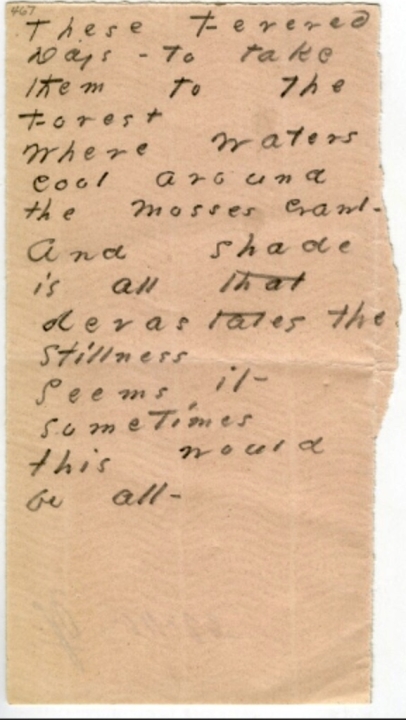 467
These Fevered
Days - to take
them to the
Forest
Where Waters
cool around
the Mosses crawl -
And shade
is all that
devastates the
Stillness
Seems it
sometimes
this would
be all -